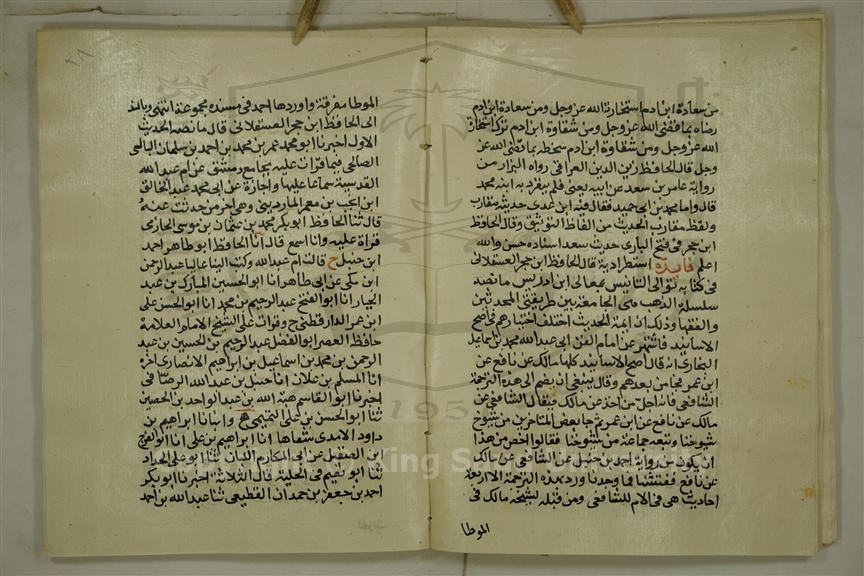 من سعادة ابن ادم استخارة الله عز وجل ومن سعادة ابن ادم
رضاه بما قضى الله عز وجل ومن شقاوة ابن ادم تركه استخارة
الله عز وجل ومن شقاوة ابن ادم سخطه بما قضى الله عز
وجل قال الحافظ زين الدين العراقي رواه البزار من
رواية عامر بن سعد عن ابيه يعني فلم ينفرد به ابنه محمد
قال واما محمد بن ابي حميد فقال فيه ابن عدي حديثه مقارب
ولفظ مقارب الحديث من الفاظ التوثيق وقال الحافظ
ابن حجر في فتح الباري حديث سعد اسناده حسن والله
اعلم فايدة استطرادية قال الحافظ ابن حجر العسقلاني
في كتابه توالي التانيس بمعالي ابن ادريس ما نصه
سلسلة الذهب هي الجامعة بين طريقتي المحدثين
والفقها وذلك ان ايمة الحديث اختلف اختيارهم في اصح
الاسانيد فاشتهر عن امام الفن ابي عبد الله محمد بن اسماعيل
البخاري انه قال اصح الاسانيد كلها مالك عن نافع عن
ابن عمر فجا من بعدهم وقال ينبغي ان يضم الى هذه الترجمة
الشافعي فانه اجل من اخذ عن مالك فيقال الشافعي عن
مالك عن نافع عن ابن عمر ثم جا بعض المتاخرين من شيوخ
شيوخنا وتبعه جماعة من شيوخنا فقالوا اخص من هذا
ان يكون من رواية احمد بن حنبل عن الشافعي عن مالك
عن نافع ففتشنا فما وجدنا ورد بهذه الترجمة الا اربعة
احاديث هي في الام للشافعي ومن قبله لشيخه مالك في
الموطا
الموطا مفرقة واوردها احمد في مسنده مجموعة انتهى وبالسند
الى الحافظ ابن حجر العسقلاني قال ما نصه الحديث
الاول اخبرنا ابو محمد عمر بن محمد بن احمد بن سلمان البالسي
الصالحي فيما قرات عليه بجامع دمشق عن ام عبد الله
القدسية سماعا عليها واجازة عن ابي محمد عبد الخالق
ابن انجب بن معمر المارديني وهي اخر من حدثت عنه
قال ثنا الحافظ ابو بكر محمد بن عثمان بن موسى الحازمي
قراة عليه وانا اسمع قال انا الحافظ ابو طاهر احمد
ابن حنبل ح قالت ام عبد الله وكتب الينا عاليا عبد الرحمن
ابن مكي عن ابي طاهر انا ابو الحسين المبارك بن عبد
الجبار انا ابو الفتح عبد الرحيم بن محمد انا ابو الحسن علي
ابن عمر الدارقطني ح وقرات على الشيخ الامام العلامة
حافظ العصر ابو الفضل عبد الرحيم بن الحسين بن عبد
الرحمن بن محمد بن اسماعيل بن ابراهيم الانصاري اخبره
انا المسلم بن علان انا حنبل بن عبد الله الرصافي
اخبرنا ابو القاسم هبة الله بن عبد الواحد بن الحصين
ثنا ابو الحسن بن علي التميمي ح وانبانا ابراهيم بن
داود الامدي شفاها انا ابراهيم بن علي انا ابو الفرج
ابن الصيقل عن ابي المكارم اللبان ثنا ابو علي الحداد
ثنا ابو نعيم في الحلية قال الثلاثة اخبرنا ابو بكر
احمد بن جعفر بن حمدان القطيعي ثنا عبد الله بن احمد